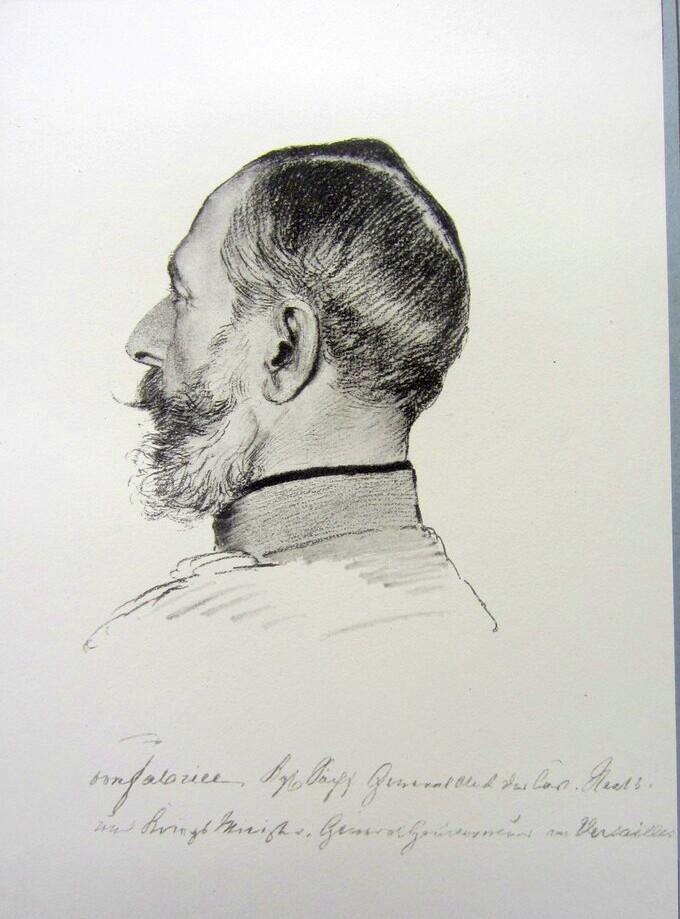 von Fabrice Kgl. Sächs General der Cav. Staats-
und Kriegs Minister, General Gouverneur in Versailles